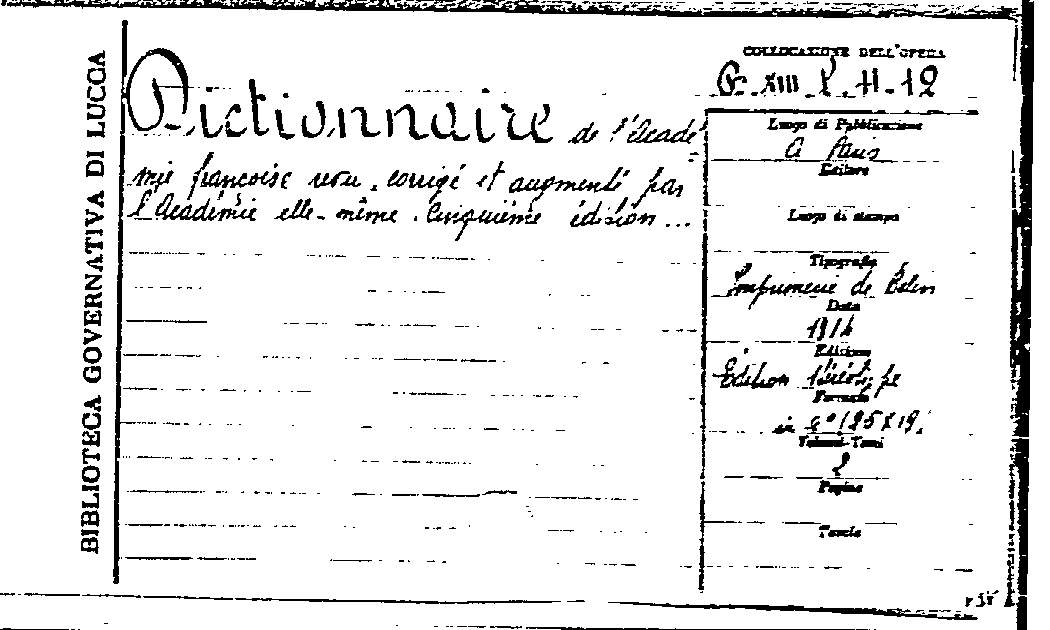 BIBLIOTECA GOVERNATIVA DI LUCCA
Dictionnaire de l'Acadé
mie françoise revu, corrigé et augmenté par
l'Académie elle-même. Cinquième édition...
COLLOCAZIONE DELL'OPERA
XIII 11-12
Luogo di Pubblicazione
A Paris
Editore
Luogo di stampa
Tipografia
Imprimerie de Belin
Data
Edizione
Édition
Formato
in 4°
Volumi-Tomi
2
Pagine
Tavole